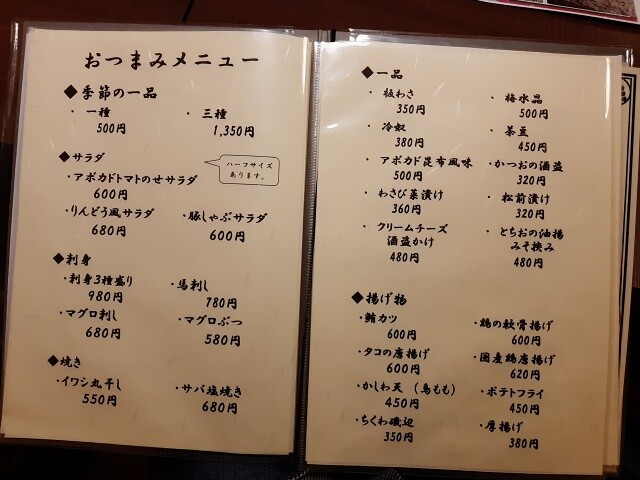 おつまみメニュー
◆季節の一品
・一種
500円
・三種
1,350円
◆サラダ
ハーフサイズ
あります。
・アボカドトマトのせサラダ
600円
・りんどう風サラダ
680円
・豚しゃぶサラダ
600円
◆刺身
・刺身3種盛り
980円
・馬刺し
780円
・マグロ刺し
680円
・マグロぶつ
580円
◆焼き
・イワシ丸干し
550円
・サバ塩焼き
680円
◆一品
・板わさ
350円
・梅水晶
500円
・冷奴
380円
・茶豆
450円
・アボカド昆布風味
500円
・かつおの酒盗
320円
・わさび菜漬け
360円
・松前漬け
320円
・クリームチーズ
酒盗かけ
480円
・とちおの油揚
みそ挟み
480円
◆揚げ物
・鮪カツ
600円
・鶏の軟骨揚げ
600円
・タコの唐揚げ
600円
・国産鶏唐揚げ
620円
・かしわ天（鳥もも）
450円
・ポテトフライ
450円
・ちくわ磯辺
350円
・厚揚げ
380円